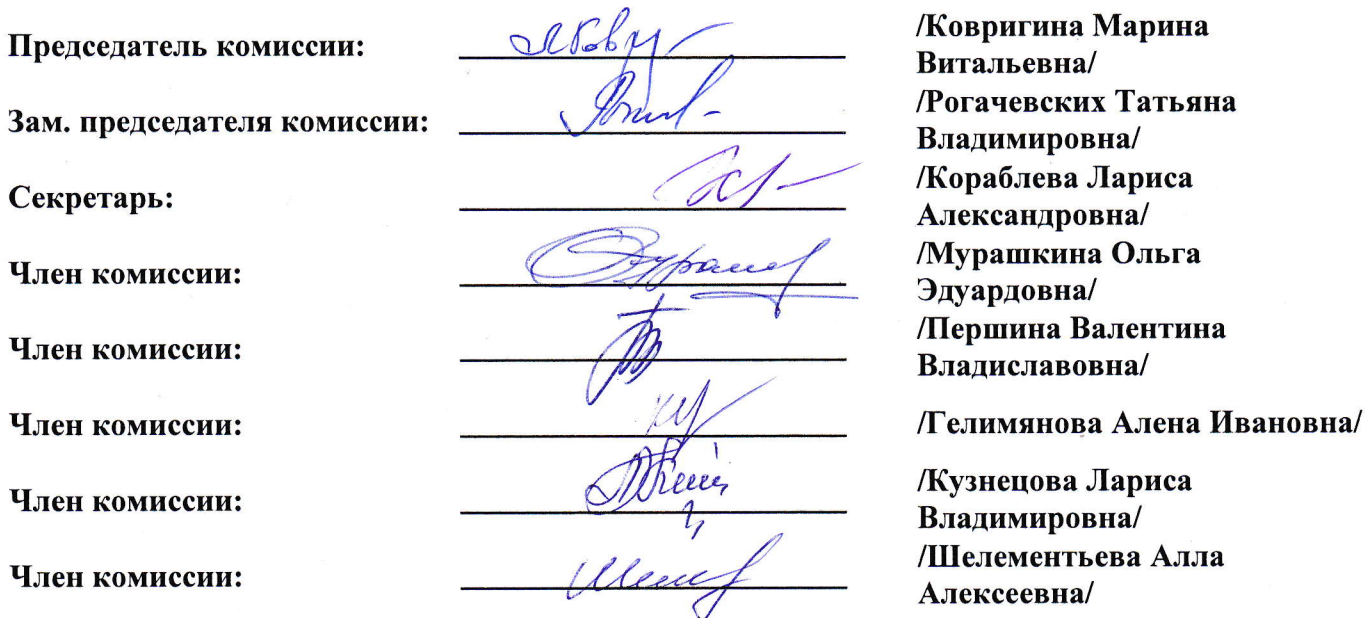 Председатель комиссии: /Ковригина Марина
Витальевна/
Зам. председателя комиссии: /Рогачевских Татьяна
Владимировна/
Секретарь: /Кораблева Лариса
Александровна/
Член комиссии: /Мурашкина Ольга
Эдуардовна/
Член комиссии: /Першина Валентина
Владиславовна/
Член комиссии: /Гелимянова Алена Ивановна/
Член комиссии: /Кузнецова Лариса
Владимировна/
Член комиссии: /Шелементьева Алла
Алексеевна/